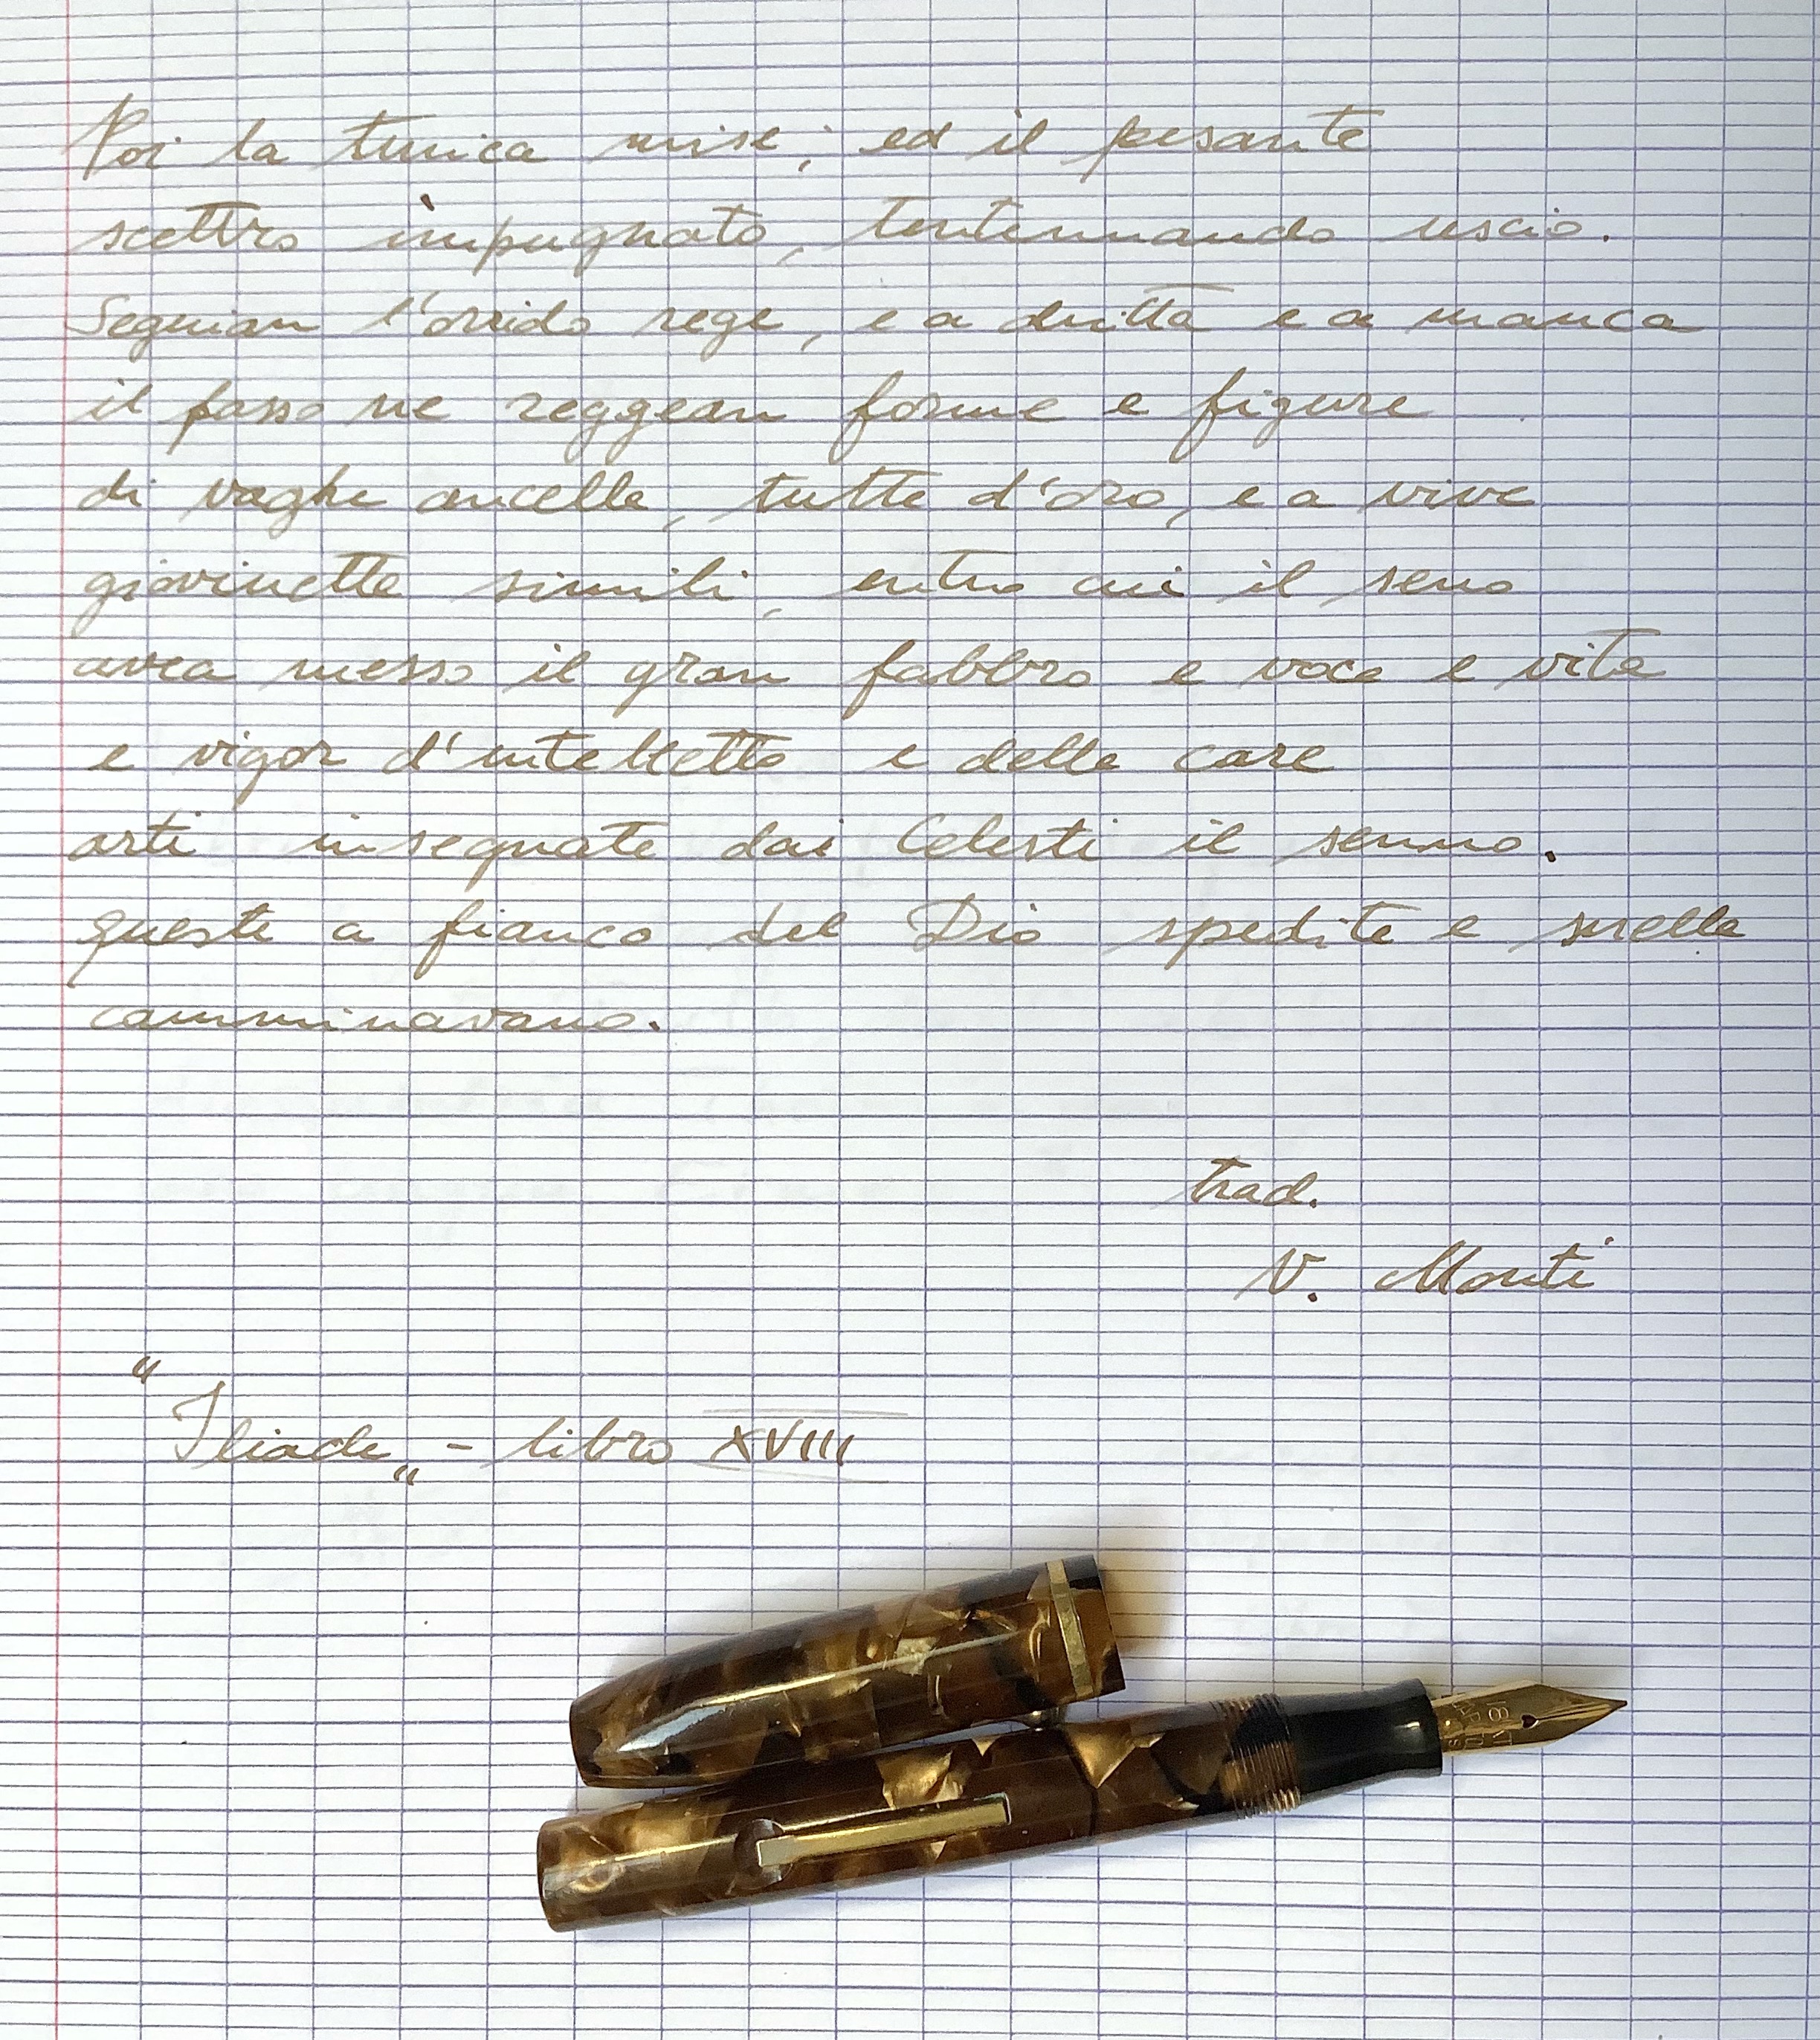 Poi la tunica mise; ed il pesante
scettro impugnato, tentennando uscio.
Seguian l'orrido rege, e a dritta e a manca
il passo ne reggean forme e figure
di vaghe ancelle, tutte d'oro, e a vive
giovinette simili, entro cui il seno
avea messo il gran fabbro e voce e vita
e vigor d'intelletto e delle care
arti insegnate dai Celesti il senno.
queste a fianco del Dio spedite e snelle
camminavano.
trad.
V. Monti
"Iliade„ - libro XVIII